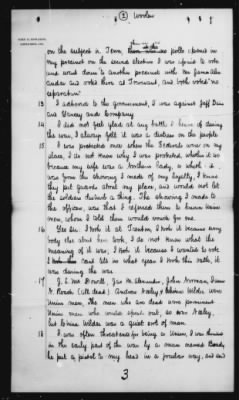 (2) Woolen
on the subject in Tenn, there were no polls opened in
my precinct on the second election I was afraid to vote
and went down to another precinct with Tom
and we voted there at Fremount, and both voted "no
separation"
13 I adhered to the government, I was against Jeff Davis
and and Company
14 I did not feel glad at any battle I hear of during
the war, I always felt it was a distress on the people
15 I was protected once when the Federals were on my
place, I do not know why I was protected, whether it was
because my wife was a Northern Lady, or which it
was from the showing I made of my loyalty, I know
they put guards about my place, and would not let
the soldiers disturb a thing. The showing I made to
the officers, was that I referred them to known Union
men, whom I told them would vouch for me.
16 Yes Sir. I took it at Trenton, I took it because every
body else about him took it, I do not know what the
meaning of it was, I took it because I wanted to vote
I cant state in what year I took this oath, it
was during the war.
17 J. L. McDowell, Jas M. Alexander, John Norman, Isaac
N. Roach (all dead) Andrew Neeley & Wilder were
Union men, The men who are dead were prominent
Union men who would speak out, so was Neeley,
but Wilder was a quiet sort of man.
18 I was often threatened for being a Union, I was threatened
in the early part of the war by a man named Bond,
he put a pistol to my head in a powder way, and said
3